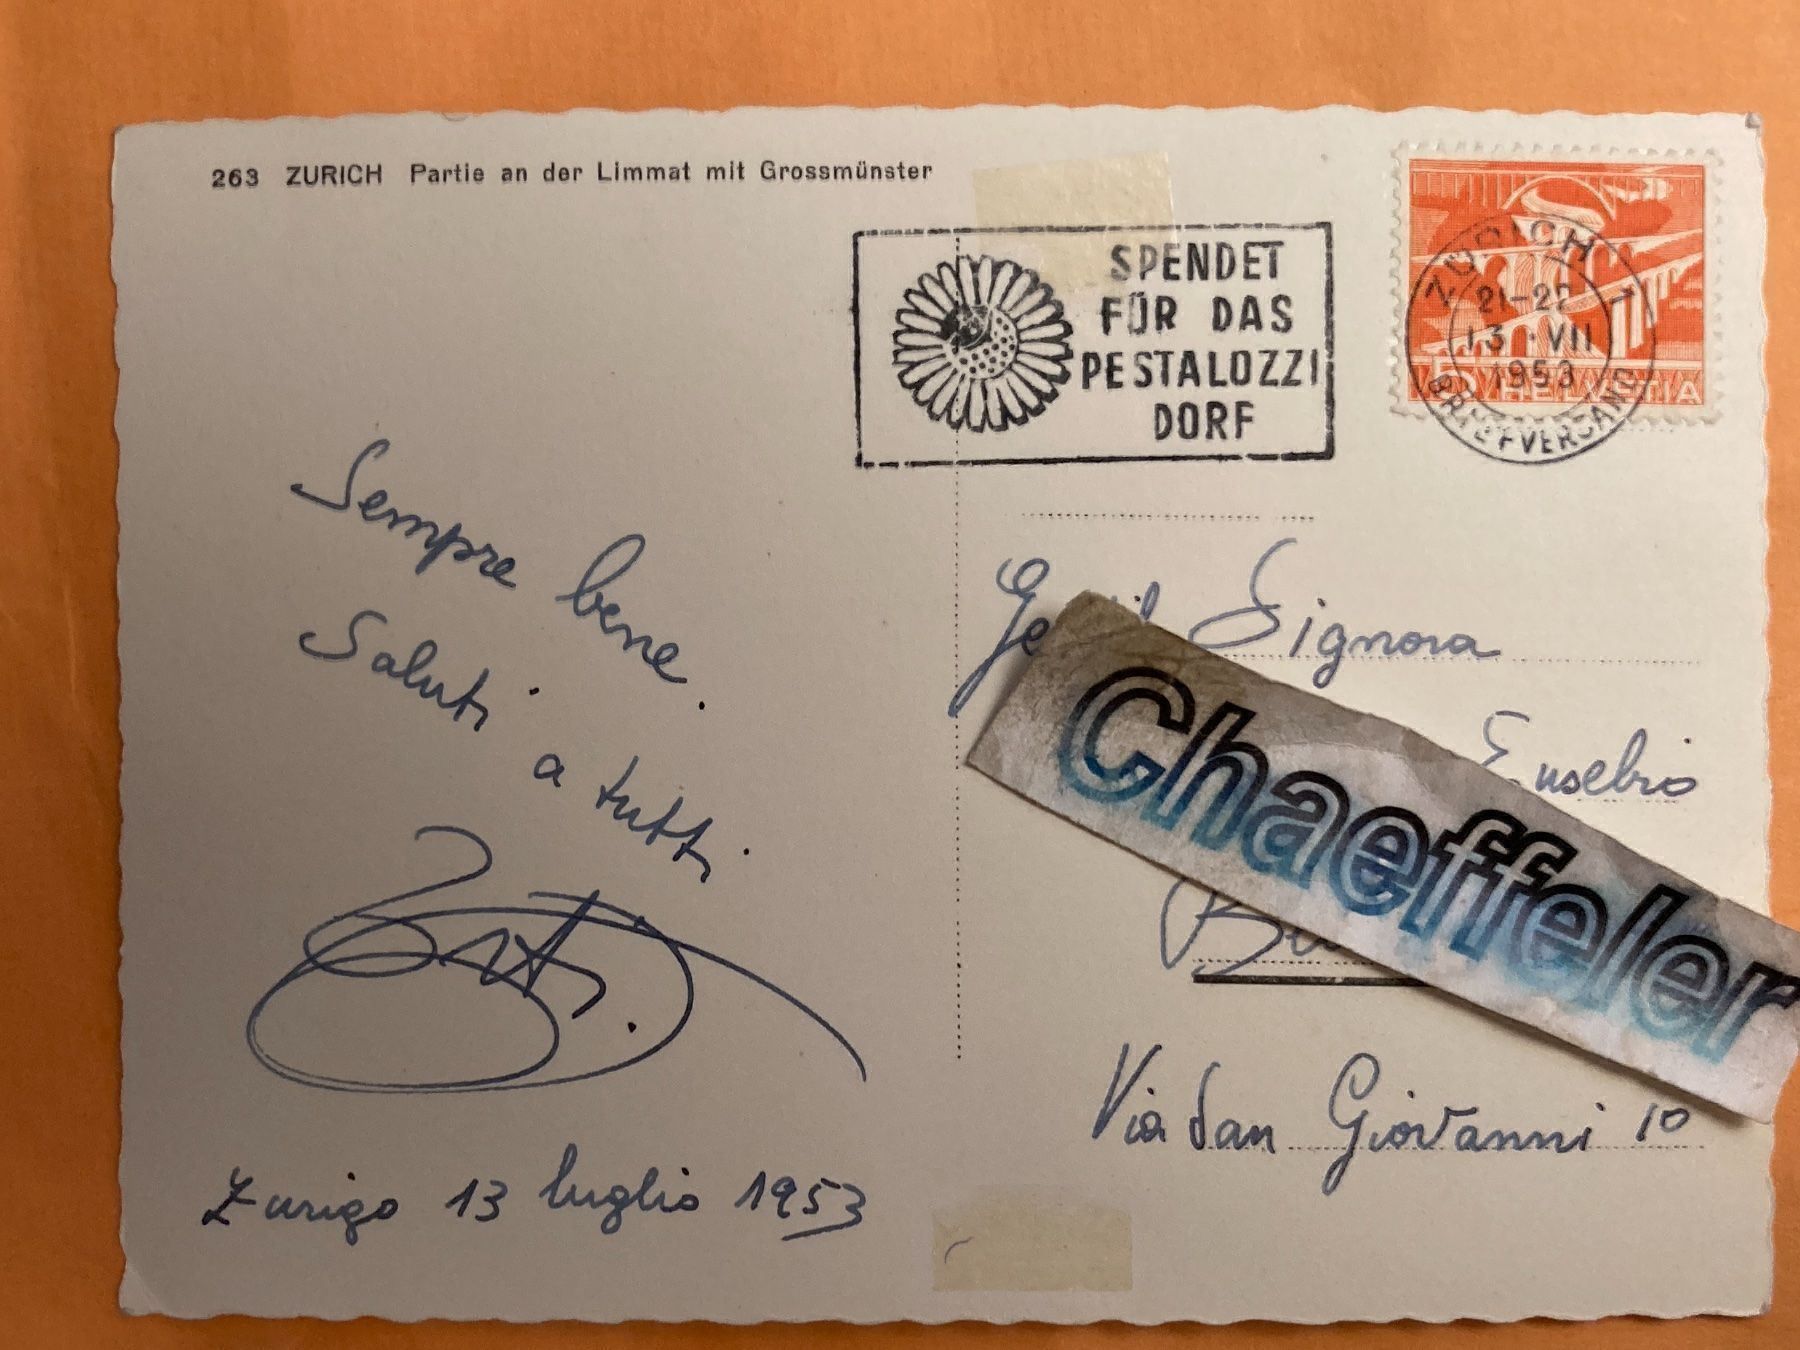 263 ZURICH Partie an der Limmat mit Grossmünster
SPENDET
FÜR DAS
PESTALOZZI
DORF
ZÜRICH 1
21-22
13.VII
1953
BRIEFVERSAND
5 HELVETIA
Sempre bene.
Saluti a tutti.
Zurigo 13 luglio 1953
Signora
Eusebio
Chaeffeler
Via San Giovanni 10